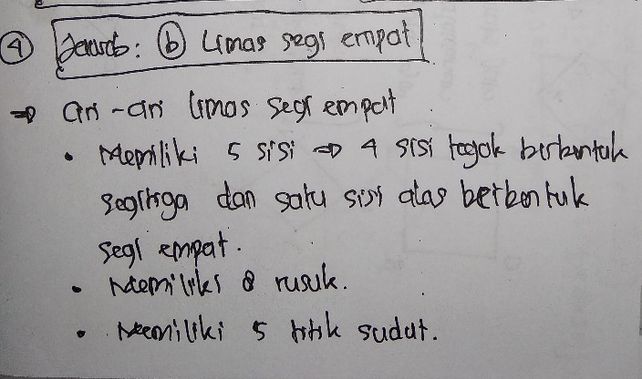 4 Jawab: b Limas segi empat
⇒ Ciri-ciri limas segi empat
• Memiliki 5 sisi ⇒ 4 sisi tegak berbentuk
segitiga dan satu sisi alas berbentuk
segi empat.
• Memiliki 8 rusuk.
• Memiliki 5 titik sudut.